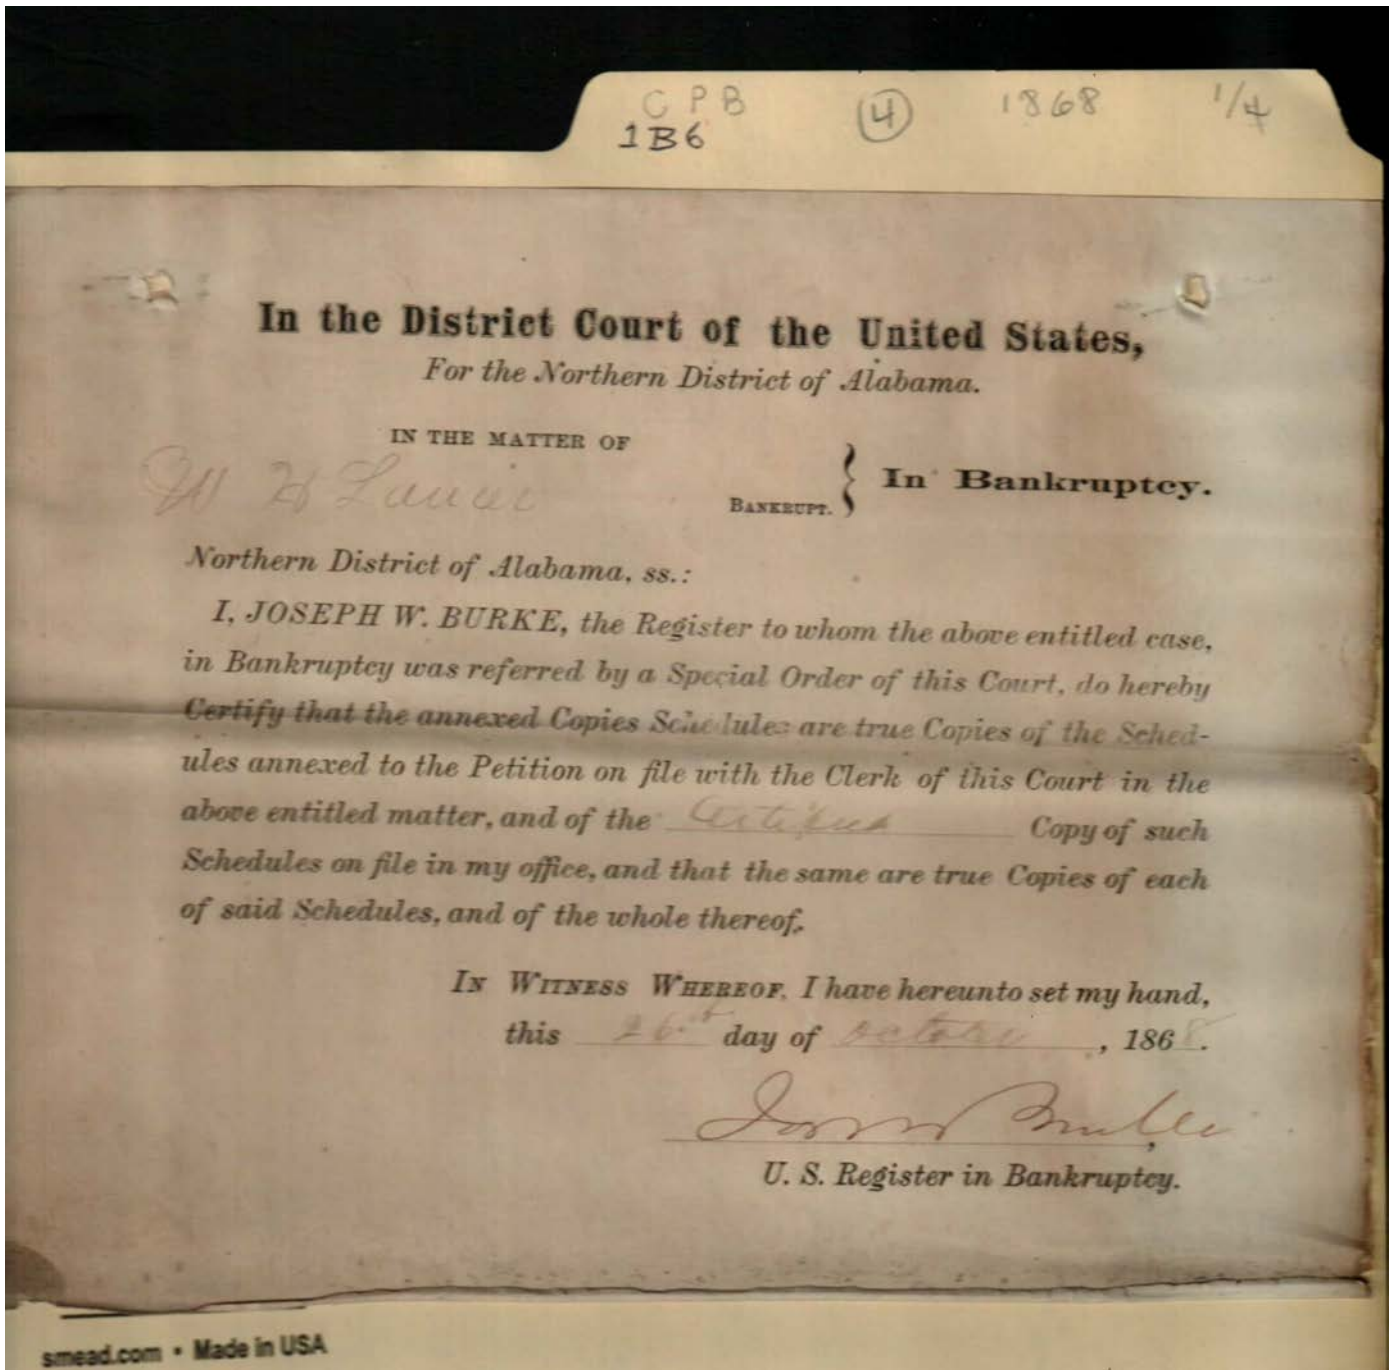 C P B 4 1868 1/4
1B6
In the District Court of the United States,
For the Northern District of Alabama.
IN THE MATTER OF
W H Lanier
BANKRUPT. } In Bankruptcy.
Northern District of Alabama, ss.:
I, JOSEPH W. BURKE, the Register to whom the above entitled case,
in Bankruptcy was referred by a Special Order of this Court, do hereby
Certify that the annexed Copies Schedules are true Copies of the Sched-
ules annexed to the Petition on file with the Clerk of this Court in the
above entitled matter, and of the Certified Copy of such
Schedules on file in my office, and that the same are true Copies of each
of said Schedules, and of the whole thereof.
IN WITNESS WHEREOF, I have hereunto set my hand,
this 26th day of October, 1868.
Jos W Burke
U. S. Register in Bankruptcy.
smead.com • Made in USA